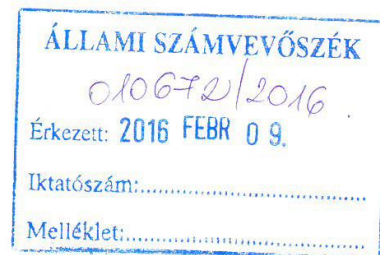 ÁLLAMI SZÁMVEVŐSZÉK
010672/2016
Érkezett: 2016 FEBR 09.
Iktatószám:........................................
Melléklet:........................................